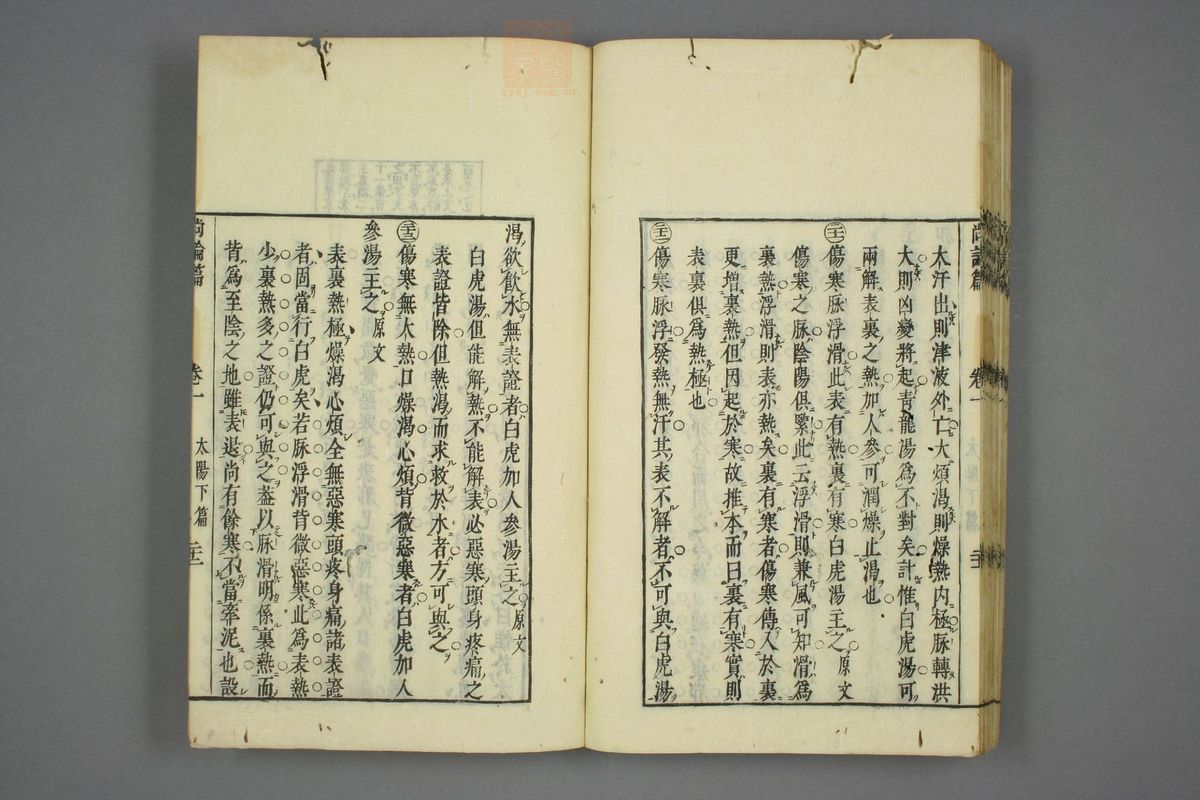 大汗出則津液外亡大煩渴則燥熱内極脉轉洪
大則凶變將起青龍湯爲不對矣計惟白虎湯可
兩解表裏之熱加人參可潤燥止渴也
傷寒脉浮滑此表有熱裏有寒白虎湯主之原文
傷寒之脉陰陽俱緊此云浮滑則兼風可知滑爲
裏熱浮滑則表亦熱矣裏有寒者傷寒傳入於裏
更增裏熱但因起於寒故推本而曰裏有寒實則
表裏俱爲熱極也
傷寒脉浮發熱無汗其表不解者不可與白虎湯
渴欲飲水無表證者白虎加人參湯主之原文
白虎湯但能解熱不能解表必惡寒頭身疼痛之
表證皆除但熱渴而求救於水者方可與之
傷寒無大熱口燥渴心煩背微惡寒者白虎加人
參湯主之原文
表裏熱極燥渴心煩全無惡寒頭疼身痛諸表證
者固當行白虎矣若脉浮滑背微惡寒此爲表熱
少裏熱多之證仍可與之葢以脉滑明係裏熱而
背爲至陰之地雖表退尚有餘寒不當牽泥也設
尚論篇 卷一 太陽下篇
zysj.com.cn